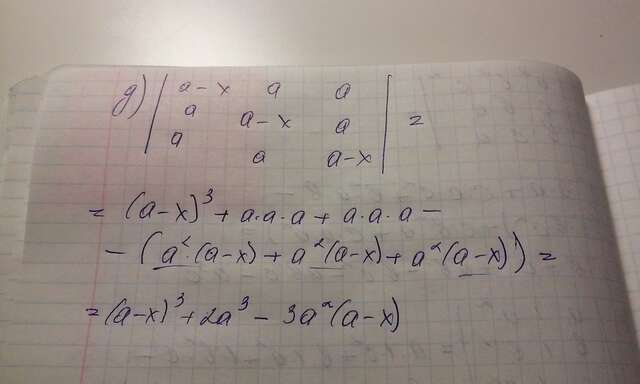 g) | a-x a a |
| a a-x a | =
| a a a-x |
= (a-x)³ + a·a·a + a·a·a -
- (a²·(a-x) + a²(a-x) + a²(a-x)) =
= (a-x)³ + 2a³ - 3a²(a-x)